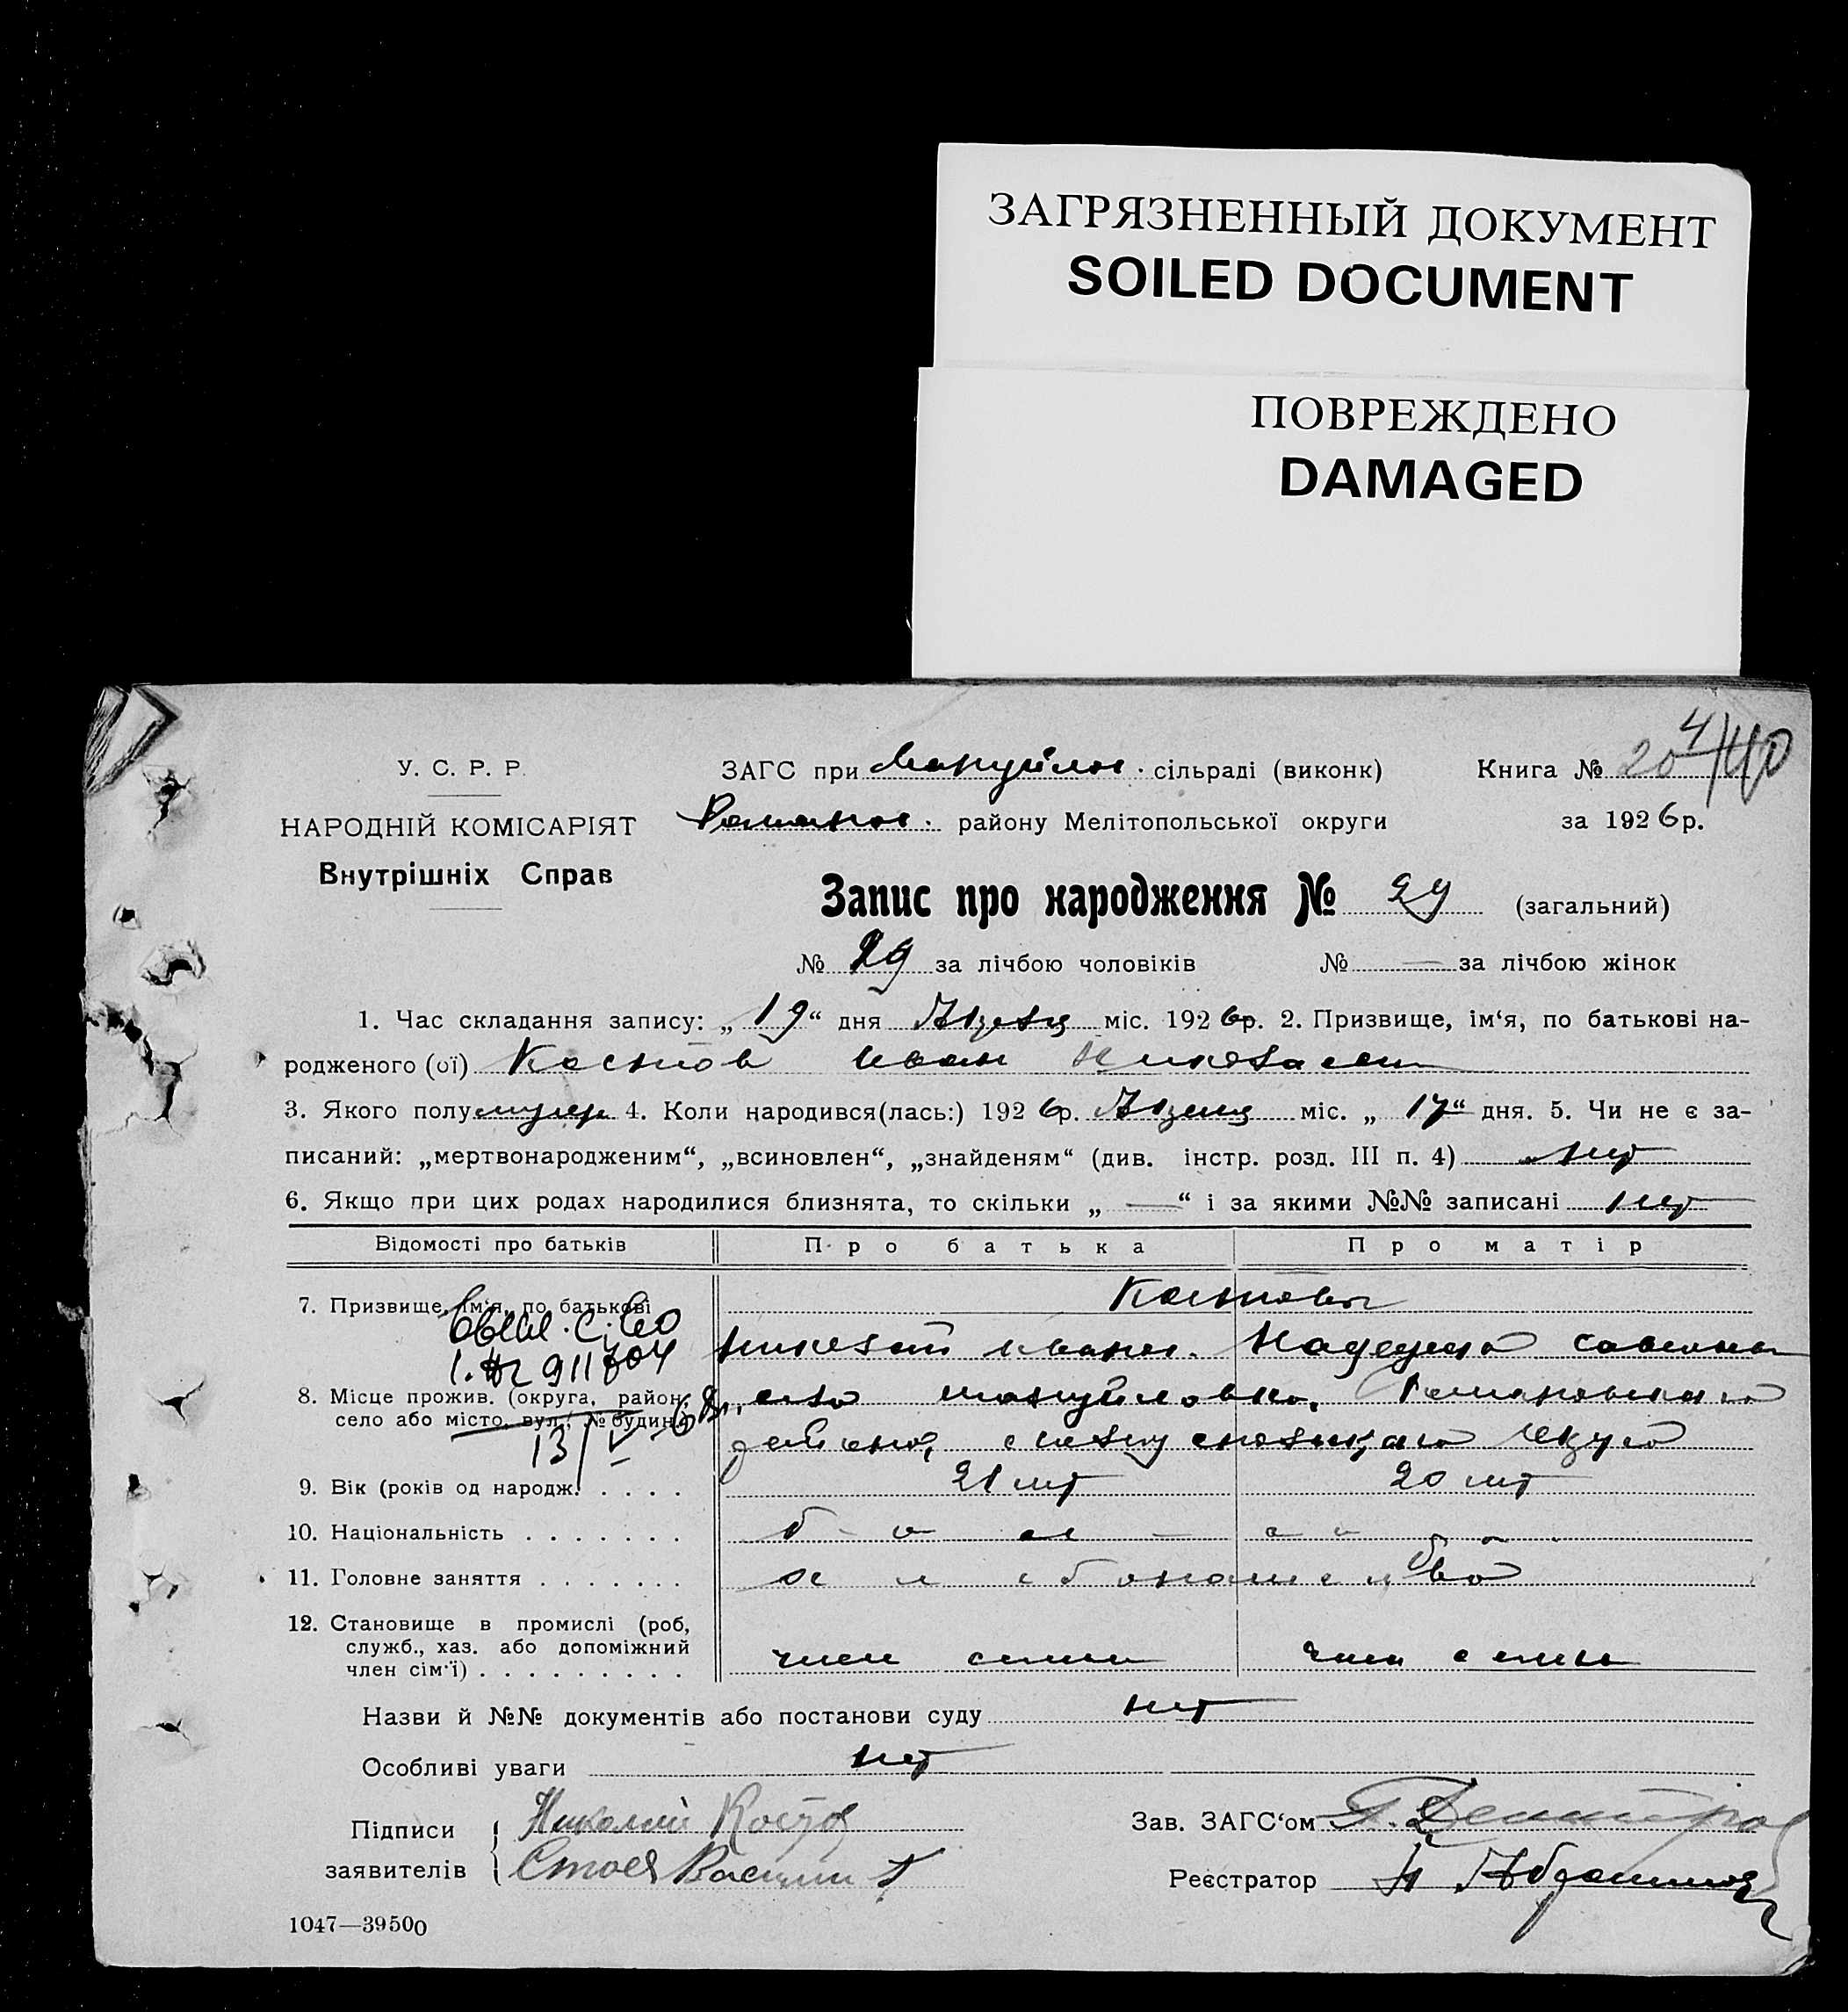 ЗАГРЯЗНЕННЫЙ ДОКУМЕНТ
SOILED DOCUMENT
ПОВРЕЖДЕНО
DAMAGED
У. С. Р. Р.
НАРОДНІЙ КОМІСАРІЯТ
Внутрішніх Справ
ЗАГС при Мануйлов. сільраді (виконк) Книга № 20
Романов. району Мелітопольської округи за 1926 р.
Запис про народження № 29 (загальний)
№ 29 за лічбою чоловіків № — за лічбою жінок
1. Час складання запису: „ 19 “ дня міс. 1926 р. 2. Призвище, ім‘я, по батькові на-
родженого (ої) Костов Иван Николаевич
3. Якого полу 4. Коли народився(лась:) 1926 р. міс. „ 17 “ дня. 5. Чи не є за-
писаний: „мертвонародженим“, „всиновлен“, „знайденям“ (див. інстр. розд. III п. 4) нет
6. Якщо при цих родах народилися близнята, то скільки „ — “ і за якими №№ записані нет
Відомості про батьків Про батька Про матір
7. Призвище, ім‘я, по батькові Костовы
Николай Иванов. Надежда Савельевн
8. Місце прожив. (округа, район, село або місто, вул., № будин.)
село Мануйловка, Романовского
района, Мелитопольского
9. Вік (років од народж. . . . . 21 лет 20 лет
10. Національність . . . . . . .
11. Головне заняття . . . . . . . хлебопашество
12. Становище в промислі (роб,
служб., хаз. або допоміжний
член сім‘ї) . . . . . . . . . . член семьи член семьи
Назви й №№ документів або постанови суду нет
Особливі уваги нет
Підписи Николай Костов Зав. ЗАГС‘ом
заявителів Стоев Реєстратор
1047—39500